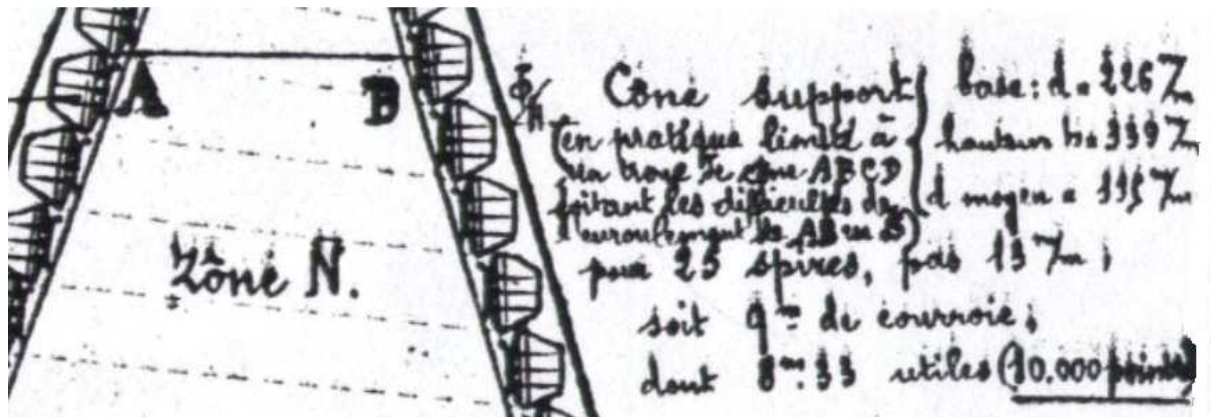 A
B
Zône N.
Cône support
en pratique limité à
un tronc de cône ABCD
évitant les difficultés de
l'enroulement de AB en S
base: d = 226 m/m
hauteur h = 339 m/m
d moyen = 115 m/m
pour 25 spires, pas 13 m/m ;
soit 9m de courroie ;
dont 8m.33 utiles (10.000 points)